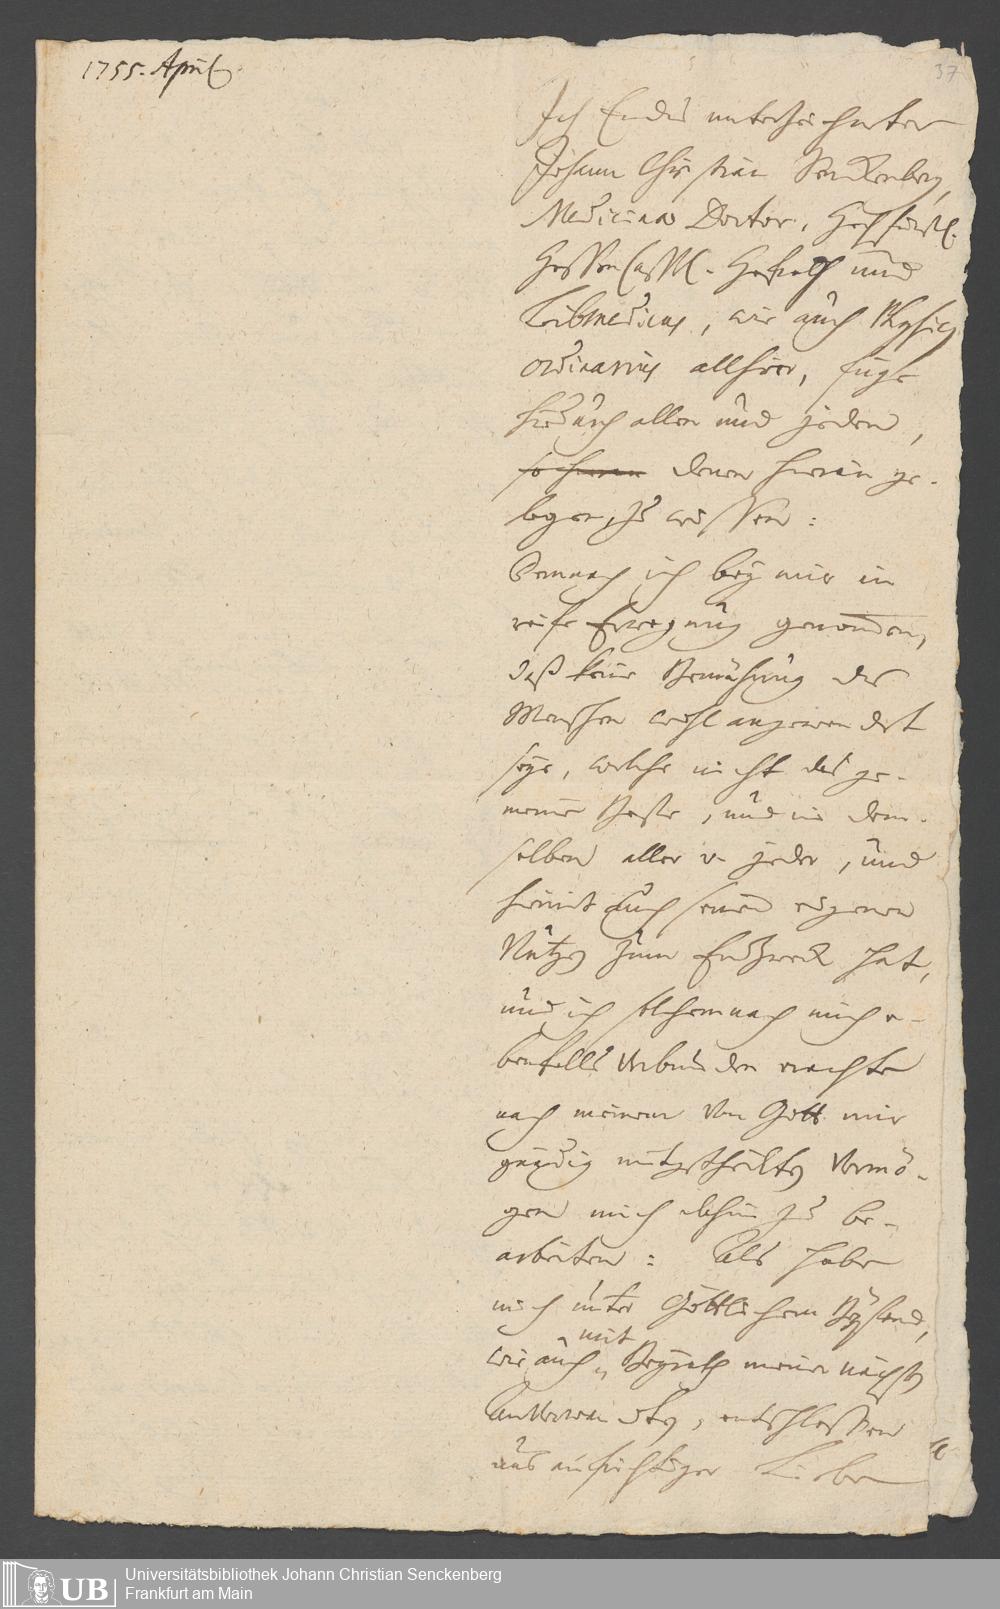 1755. April
37
Ich Endes unterzeichneter
Johann Christian Senckenberg,
Medicinae Doctor, Hochfürstl.
Hessen Cassel. Hofrath und
Leibmedicus, wie auch Physicus
ordinarius allhier, füge
hiedurch allen und jeden,
denen hieran ge-
legen, zu wissen:
Demnach ich bey mir in
reife Erwegung genommen,
daß keine Bemühung des
Menschen wohl angewendet
seye, welche nicht das ge-
meine Beste, und in dem-
selben aller u. jeder, und
hiemit auch seinen eigenen
Nutzen zum Endzweck hat,
und ich solchemnach mich e-
benfalls verbunden erachte
nach meinem von Gott mir
gnädig mitgetheilten Vermö-
gen mich dahin zu be-
arbeiten: Als habe
mich unter Göttlichem Beystand,
mit
wie auch Beyrath meiner nächsten
Anverwandten, entschlossen
aus aufrichtiger Liebe
UB
Universitätsbibliothek Johann Christian Senckenberg
Frankfurt am Main